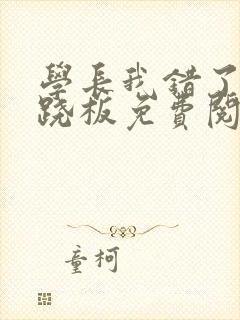 學長我錯了
跷板免費閱
童柯